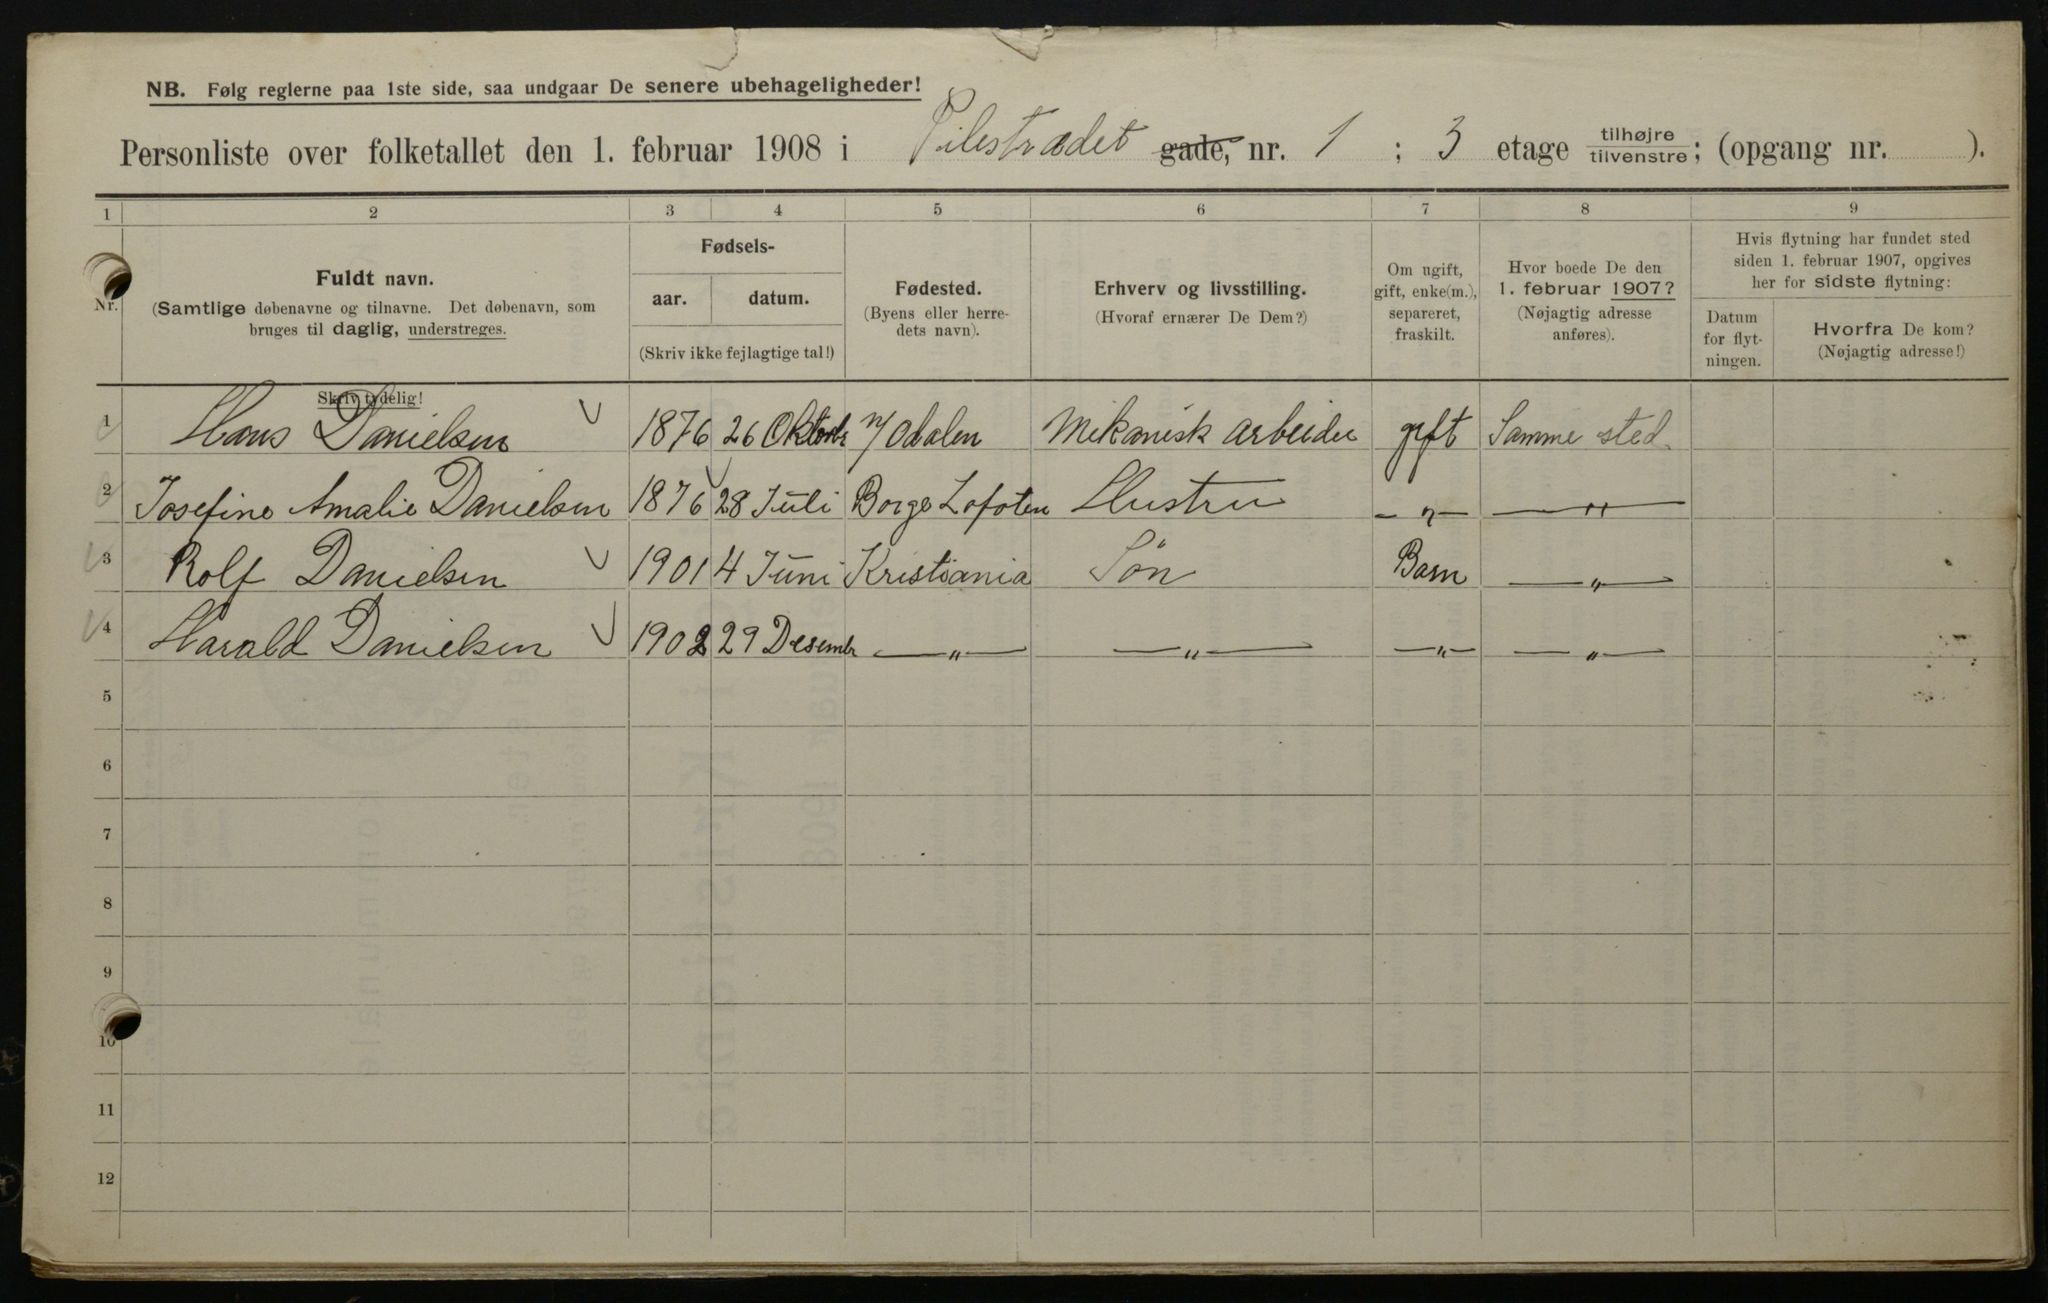 NB. Følg reglerne paa 1ste side, saa undgaar De senere ubehageligheder!
Personliste over folketallet den 1. februar 1908 i Pilestrædet gade, nr. 1 ; 3 etage tilhøjre tilvenstre; (opgang nr. ).
1 2 3 4 5 6 7 8 9
Nr.
Fuldt navn.
(Samtlige døbenavne og tilnavne. Det døbenavn, som
bruges til daglig, understreges.
Fødsels-
aar. datum.
(Skriv ikke fejlagtige tal!)
Fødested.
(Byens eller herre-
dets navn).
Erhverv og livsstilling.
(Hvoraf ernærer De Dem?)
Om ugift,
gift, enke(m.),
separeret,
fraskilt.
Hvor boede De den
1. februar 1907?
(Nøjagtig adresse
anføres).
Hvis flytning har fundet sted
siden 1. februar 1907, opgives
her for sidste flytning:
Datum
for flyt-
ningen.
Hvorfra De kom?
(Nøjagtig adresse!)
Skriv tydelig!
1 Hans Danielsen 1876 26 Oktobr N/Odalen Mikanisk arbeider gift Samme sted
2 Josefine Amalie Danielsen 1876 28 Juli Borge Lofoten Hustru — " — — " —
3 Rolf Danielsen 1901 4 Juni Kristiania Søn Barn — " —
4 Harald Danielsen 1902 29 Desembr — " — — " — — " — — " —
5
6
7
8
9
10
11
12